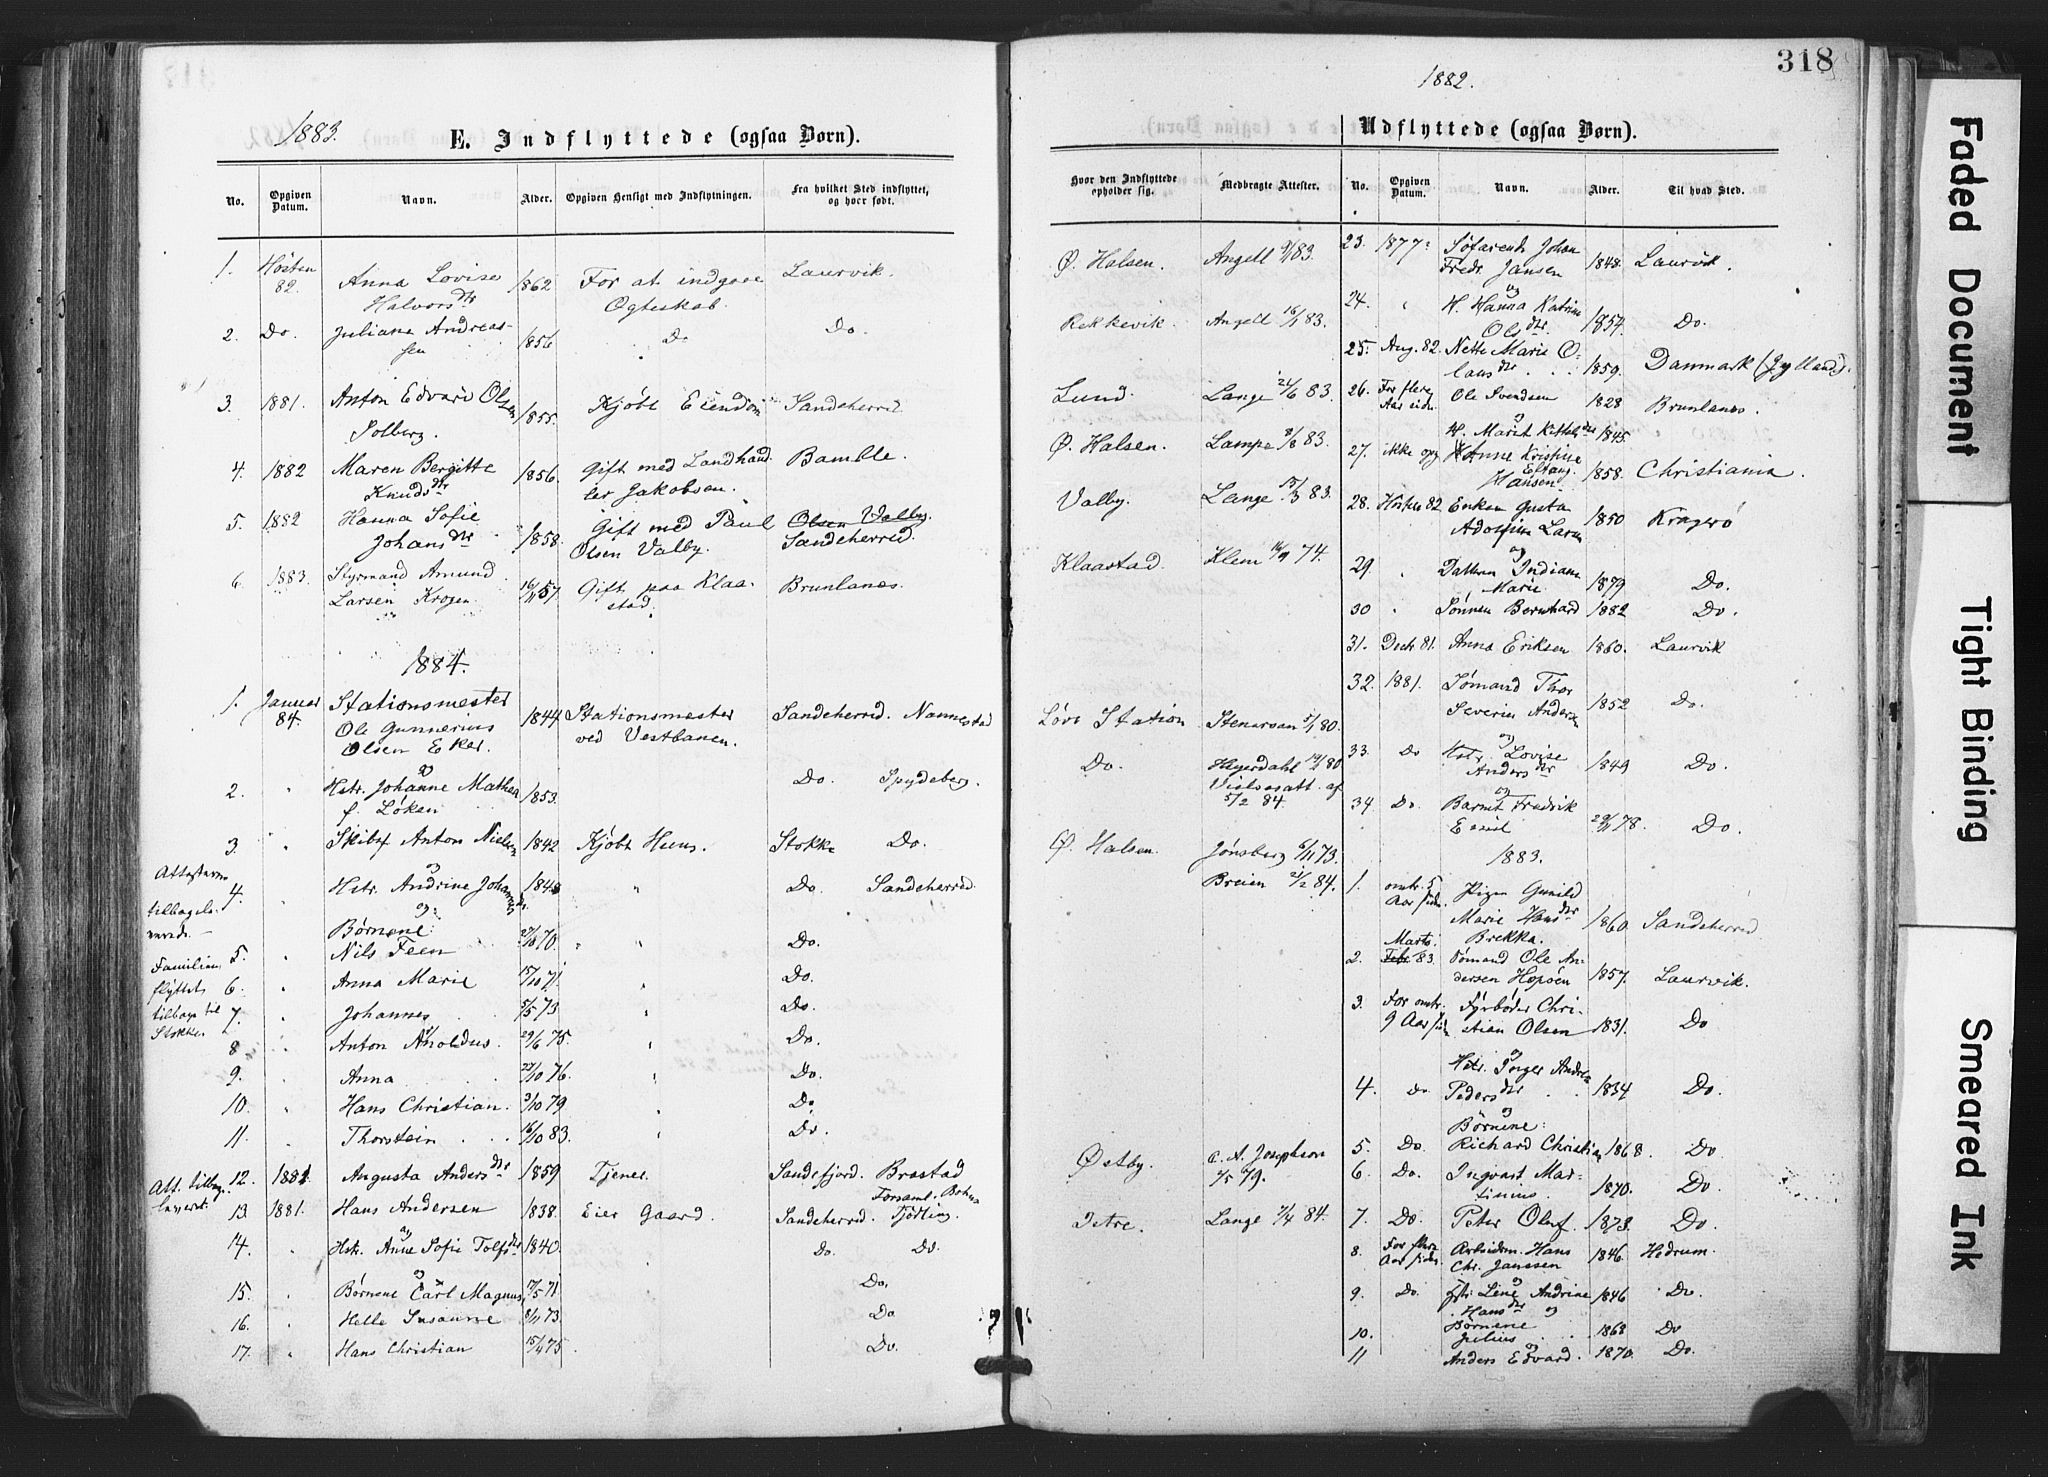 318
1883.
E. Indflyttede (ogsaa Børn).
No.
Opgiven Datum.
Navn.
Alder.
Opgiven Hensigt med Indflytningen.
Fra hvilket Sted indflyttet, og hvor født.
1. Høsten 82. Anna Lovise Halvorsdtr 1862 For at indgaae Ægteskab. Laurvik.
2. Do. Juliane Andreassen 1856 Do Do.
3. 1881. Anton Edvard Olsen Solberg. 1855. Kjøbt Eiendom Sandeherred
4. 1882 Maren Bergitte Knudsdtr 1856. Gift med Landhandler Jakobsen. Bamble.
5. 1882 Hanna Sofie Johansdtr 1858. Gift med Paul Olsen Valby. Olsen Valby. Sandeherred.
6. 1883. Styrmand Amund Larsen Krogen 16/11 57. Gift paa Klaastad. Brunlanes.
1884.
1. Januar 84. Stationsmester Ole Gunnerius Olsen Eker. 1844 Stationsmester ved Vestbanen. Sandeherred. Nannestad
2. " og Hstr. Johanne Mathea f. Løken 1853. Do. Spydeberg.
3. " Skibsf Anton Nielsen 1842 Kjøbt Huus. Stokke Do.
Attesterne tilbageleverede. —
4. " og Hstr. Andrine Johannesdtr 1848 " Do. Sandeherred.
og: Børnene:
5. " Nils Feen 27/10 70. " " Do.
Familien flyttet tilbage til Stokke.
6. " Anna Marie 15/10 71. " Do.
7. " Johannes 5/5 73 " Do.
8 " Anton Aholdus. 29/6 75. " Do.
9. " Anna 27/10 76. " Do.
10. " Hans Christian. 3/10 79 " Do.
11. " Thorstein 16/10 83. " Do.
Att. tilbageleveret.
12. 1881 Augusta Andersdtr 1859 Tjene. Sandefjord. Brostad
13. 1881. Hans Andersen 1838. Eier Gaard. Sandeherred. Tjølling.
14. " og Hstr. Anne Sofie Tolfsdtr 1840. Do. Do.
15. " og Børnene Carl Magnus 17/5 71 Do.
16. " Helle Susanne 8/11 73. Do
17. " Hans Christian 15/4 75 Do.
1882.
Udflyttede (ogsaa Børn).
Hvor den Indflyttede opholder sig.
Medbragte Attester.
No.
Opgiven Datum.
Navn.
Alder.
Til hvad Sted.
Ø. Halsen. Angell 9/1 83.
Rekkevik. Angell 16/1 83.
Lund. Lange 24/6 83.
Ø. Halsen. Lampe 8/8 83.
Valby. Lange 15/3 83.
Klaastad. Klem 74.
Løve Station Stenersen 5/1 80.
Do. Heyerdahl 80 Vielsesatt. af 5/2 84.
Ø. Halsen. Jønsberg 6/11 73.
Breien 21/2 84.
Østby. C. A. Josephson 7/5 79.
Istre. Lange 7/4 84.
23. 1877. Søfarende Johan Fredr. Jansen 1848. Laurvik.
24. " og H. Hanna Katrine Olsdtr 1857. Do.
25. Aug. 82. Nette Marie Olausdtr 1859. Danmark (Jylland).
26. For flere Aar siden Ole Svendsen 1828 Brunlanes.
og H. Marit Kittelsdtr 1845.
27. ikke opg Anne Kristine Hansen 1858. Christiania.
28. Høsten 82 Enken Gusta Adolfine Larsen 1850 Kragerø
29. " og Datteren Indiana Marie 1879 Do.
30 " Sønnen Bernhard 1882 Do.
31. Decb. 81. Anna Eriksen 1860. Laurvik
32. 1881. Sømand Thor Severin Andersen 1852 Do.
33. Do og Hstr. Lovise Andersdtr 1849 Do.
34. Do. og Barnet Fredrik Emil 29/11 78. Do.
1883.
1. omtr. 5 Aar siden Pigen Gunild Marie Hansdtr Brekka. 1860. Sandeherred
2. Marts. Febr 83 Sømand Ole Andersen Hopsøen 1857. Laurvik.
3. For omtr. 9 Aar siden Fyrbøder Christian Olsen 1831. Do
4. Do og Hstr. Inger Andrea Pedersdtr 1834 Do.
og Børnene:
5. Do. Richard Christian 1868. Do
6. Do. Ingvart Martinius. 1870. Do.
7. Do. Peter Oluf. 1873. Do.
8. For flere Aar siden Arbeidsm. Hans Chr. Janssen 1846. Hedrum.
9. Do. og Hstr. Lene Andrine Hansdtr 1846 Do.
10. og Børnene Julius 1868 Do
11 og Anders Edvard. 1870. Do.
Faded Document
Tight Binding
Smeared Ink